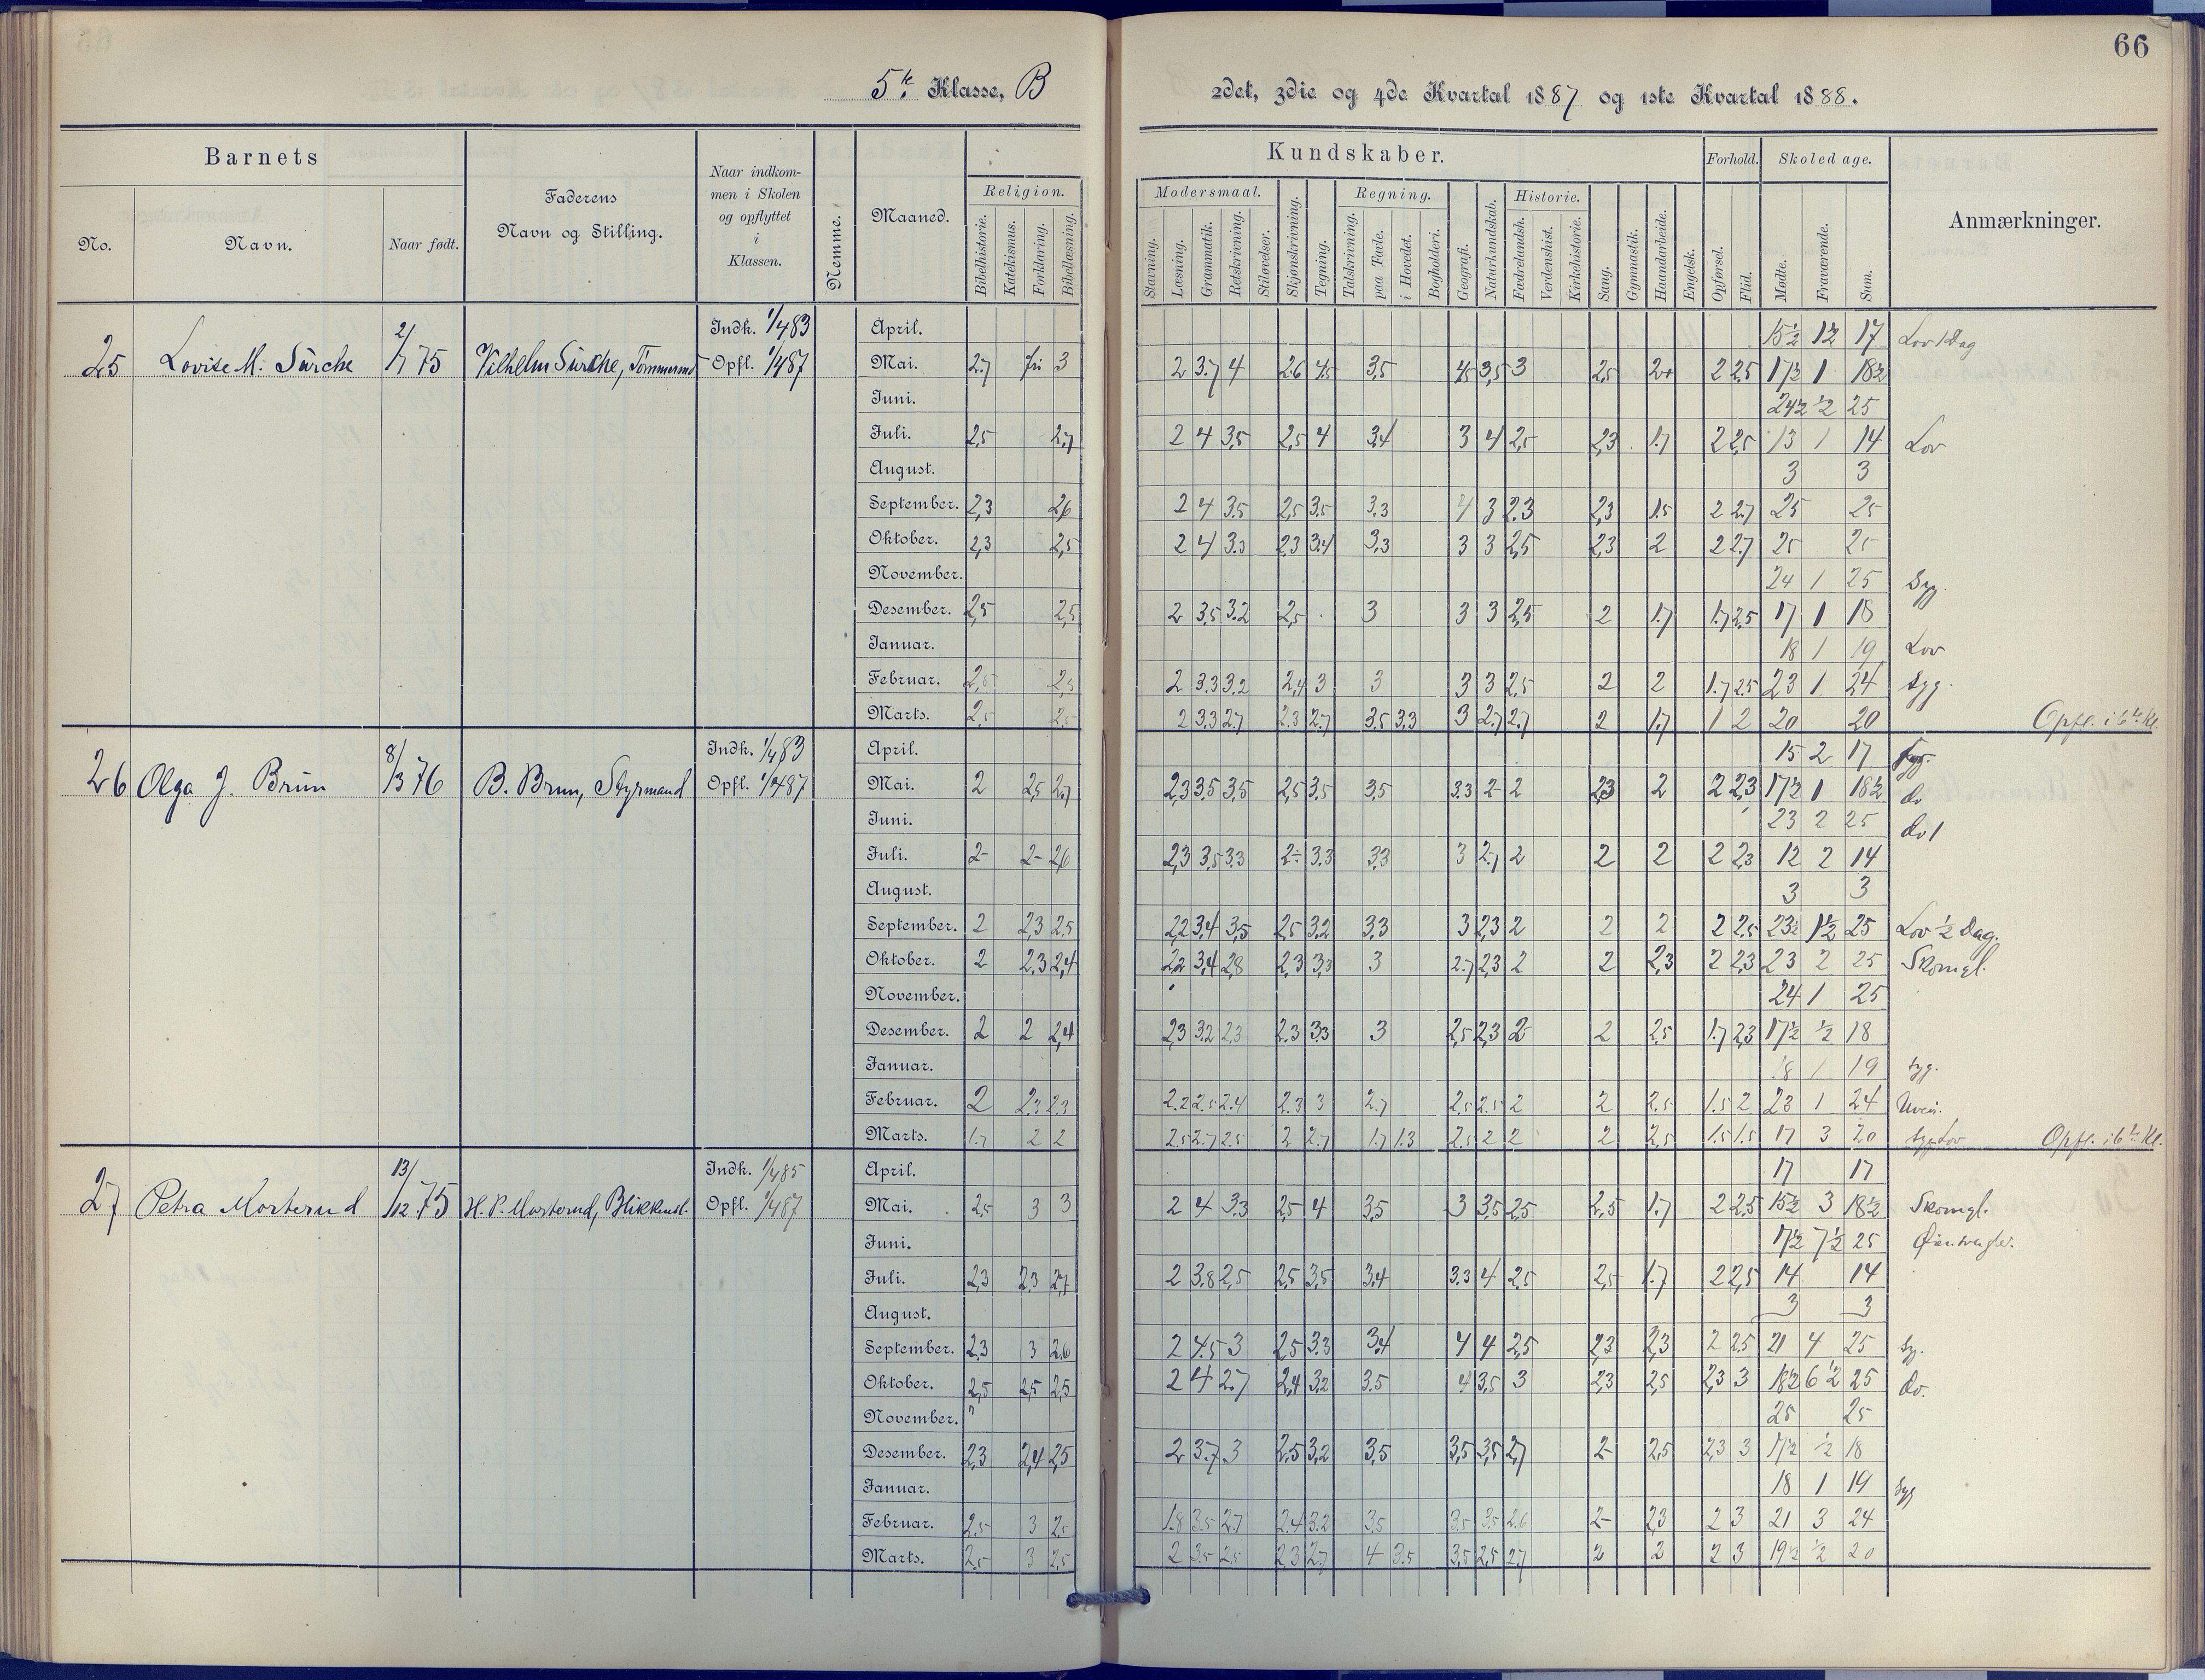 66
5te Klasse, B
2det, 3die og 4de Kvartal 1887 og 1ste Kvartal 1888.
Barnets
Faderens Navn og Stilling.
Naar indkommen i Skolen og opflyttet i Klassen.
Nemme.
Maaned.
Religion.
Kundskaber.
Forhold.
Skoledage.
Anmærkninger.
No. Navn. Naar født.
Bibelhistorie. Katekismus. Forklaring. Bibellæsning.
Modersmaal. Regning. Historie.
Stavning. Læsning. Grammatik. Retskrivning. Stiløvelser. Skjønskrivning. Tegning. Talskrivning. paa Tavle. i Hovedet. Bogholderi. Geografi. Naturkundskab. Fædrelandsh. Verdenshist. Kirkehistorie. Sang. Gymnastik. Haandarbeide. Engelsk. Opførsel. Flid. Mødte. Fraværende. Sum.
Indk. 1/4 83 April. 15½ 1½ 17 Lov 1 Dag
25 Lovise M. Sürche 2/7 75 Vilhelm Sürche, Tømmermd Opfl. 1/4 87 Mai. 2,7 3 2 3.7 4 2.6 4.5 3,5 4,5 3,5 3 2,5 2+ 2 2,5 17½ 1 18½
Juni. 24½ ½ 25
Juli. 2,5 2,7 2 4 3,5 2,5 4 3,4 3 4 2,5 2,3 1.7 2 2,5 13 1 14 Lov
August. 3 3
September. 2,3 2,6 2 4 3.5 2,5 3.5 3.3 4 3 2.3 2,3 1.5 2 2.7 25 25
Oktober. 2,3 2,5 2 4 3.3 2.3 3.4 3,3 3 3 2,5 2,3 2 2 2.7 25 25
November. 24 1 25 Syg.
Desember. 2,5 2,5 2 3.5 3.2 2,5 3 3 3 2,5 2 1.7 1.7 2,5 17 1 18
Januar. 18 1 19 Lov
Februar. 2,5 2,5 2 3.3 3.2 2,4 3 3 3 3 2,5 2 2 1.7 2.5 23 1 24 Syg.
Marts. 2,5 2,5 2 3.3 2.7 2.3 2.7 3.5 3,3 3 2.7 2.7 2 1.7 1 2 20 20 Opfl. i 6te Kl.
Indk. 1/4 83 April. 15 2 17 Syg.
26 Olga J. Brün 8/3 76 B. Brun, Styrmand Opfl. 1/4 87 Mai. 2 2,5 2,7 2,3 3.5 3,5 2,5 3.5 3.5 3.3 2 2 2,3 2 2 2,3 17½ 1 18½ do
Juni. 23 2 25 do 1
Juli. 2- 2- 2,6 2,3 3,5 3.3 2÷ 3.3 3,3 3 2,7 2 2 2 2 2,3 12 2 14
August. 3 3
September. 2 2,3 2,5 2,2 3,4 3,5 2,5 3,2 3,3 3 2,3 2 2 2 2 2.5 23½ 1½ 25 Lov ½ Dag.
Oktober. 2 2,3 2,4 2,2 3,4 2,8 2,3 3,3 3 2.7 2,3 2 2 2,3 2 2,3 23 2 25 Skomgl.
November. 24 1 25
Desember. 2 2 2,4 2,3 3.2 2,3 2.3 3.3 3 2,5 2,3 2 2 2.5 1.7 2,3 17½ ½ 18
Januar. 18 1 19 Syg.
Februar. 2 2.3 2.3 2.2 2.5 2.4 2.3 3 2.7 2.5 2.5 2 2 2.5 1.5 2 23 1 24
Marts. 1.7 2 2 2.5 2.7 2.5 2 2.7 1.7 1.3 2.5 2 2 2 2,5 1.5 1.5 17 3 20 Syg. Lov Opfl. i 6te Kl.
Indk. 1/4 85 April. 17 17
27 Petra Morterud 13/12 75 H. P. Morterud, Blikkensl. Opfl. 1/4 87 Mai. 2,5 3 3 2 4 3.3 2,5 4 3,5 3 3,5 2,5 2,5 1.7 2 2,5 15½ 3 18½ Skomgl.
Juni. 17½ 7½ 25
Juli. 2,3 2,3 2,7 2 3.8 2,5 2,5 3,5 3,4 3.3 4 2.5 2,5 1.7 2 2,5 14 14
August. 3 3
September. 2,3 3 2,6 2 4.5 3 2,5 3.3 3,4 4 4 2,5 2,3 2,3 2 2.5 21 4 25 Sy.
Oktober. 2,5 2,5 2,5 2 4 2.7 2,4 3.2 3.5 4 3.5 3 2,3 2,5 2,3 3 18½ 6½ 25 do.
November. 25 25
Desember. 2,3 2,4 2,5 2 3.7 3 2.5 3,2 3,5 3,5 3,5 2,7 2- 2,5 2,3 3 17½ ½ 18
Januar. 18 1 19 Syg
Februar. 2.5 3 2.5 1.8 3.5 2.7 2.4 3.2 3.5 3.5 3.5 2.6 2- 2,3 2 3 21 3 24
Marts. 2.5 3 2,5 2 3.5 2.5 2,3 2.7 4 3.5 3,5 2,5 2,7 2 2 2 3 19½ ½ 20